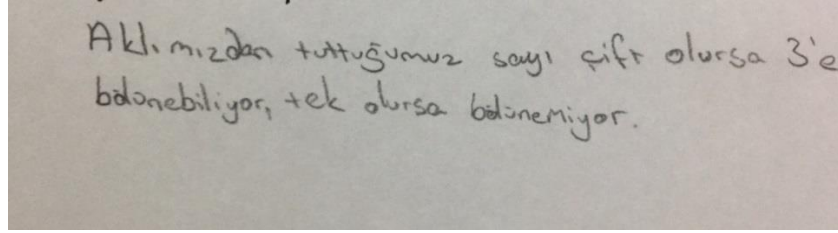 Aklımızdan tuttuğumuz sayı çift olursa 3'e
bölünebiliyor, tek olursa bölünemiyor.